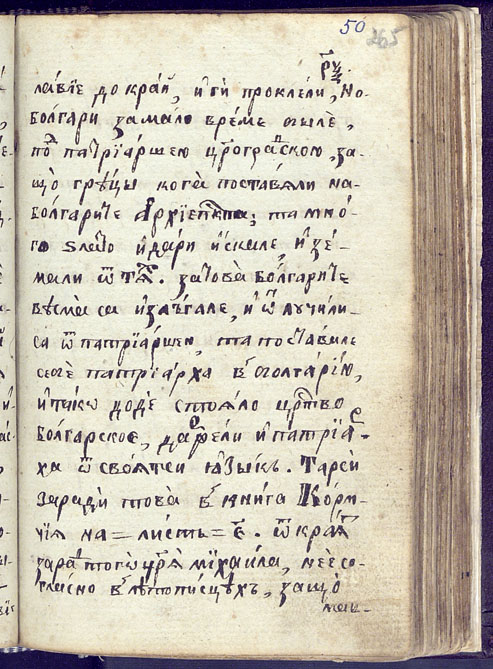 50
265
лавїе до край, и ги проклели, Но
болгари за мало време
под патрїаршею цр҃оградскою, за-
що грѣцы кога поставѧли на
болгарите Архїепкⷭ҇па, та мно-
го ѕлато и дари искале, и зе-
мали ѿ тѧх. затова болгарите
вѣсма са излъгале, и ѿлучили-
са ѿ патрїаршеи, та поставиле
себе патрїарха въ болгарїю,
и тако доде стоѧло цр҃тво
болгарское, држели и патрїа-
ха ѿ своѧтси ѧзыкъ. Тарси
заради това въ книга Корм-
чїѧ на = листъ = є. ѿ край
заради того цр҃ѧ михаила, не є со-
гласно въ лѣтописцѣхъ, защо